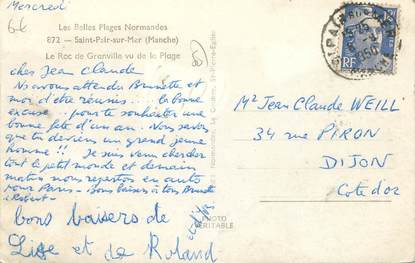 Mercredi
Les Belles Plages Normandes
872 - Saint-Pair-sur-Mer (Manche)
Le Roc de Granville vu de la Plage
cher Jean Claude
Nous avons attendu Brunette et
moi d'être réunis... la bonne
excuse... pour te souhaiter une
bonne fête d'un an. Nous savons
que tu deviens un grand jeune
homme!! Je suis venu chercher
tout le petit monde et demain
matin nous repartons en auto
pour Paris - Bons baisers à tous Brunette
et Robert -
bons baisers de
Lise et de Roland
PHOTO
VERITABLE
RF
Mr Jean Claude WEILL
34 rue PIRON
DIJON
Cote d'or